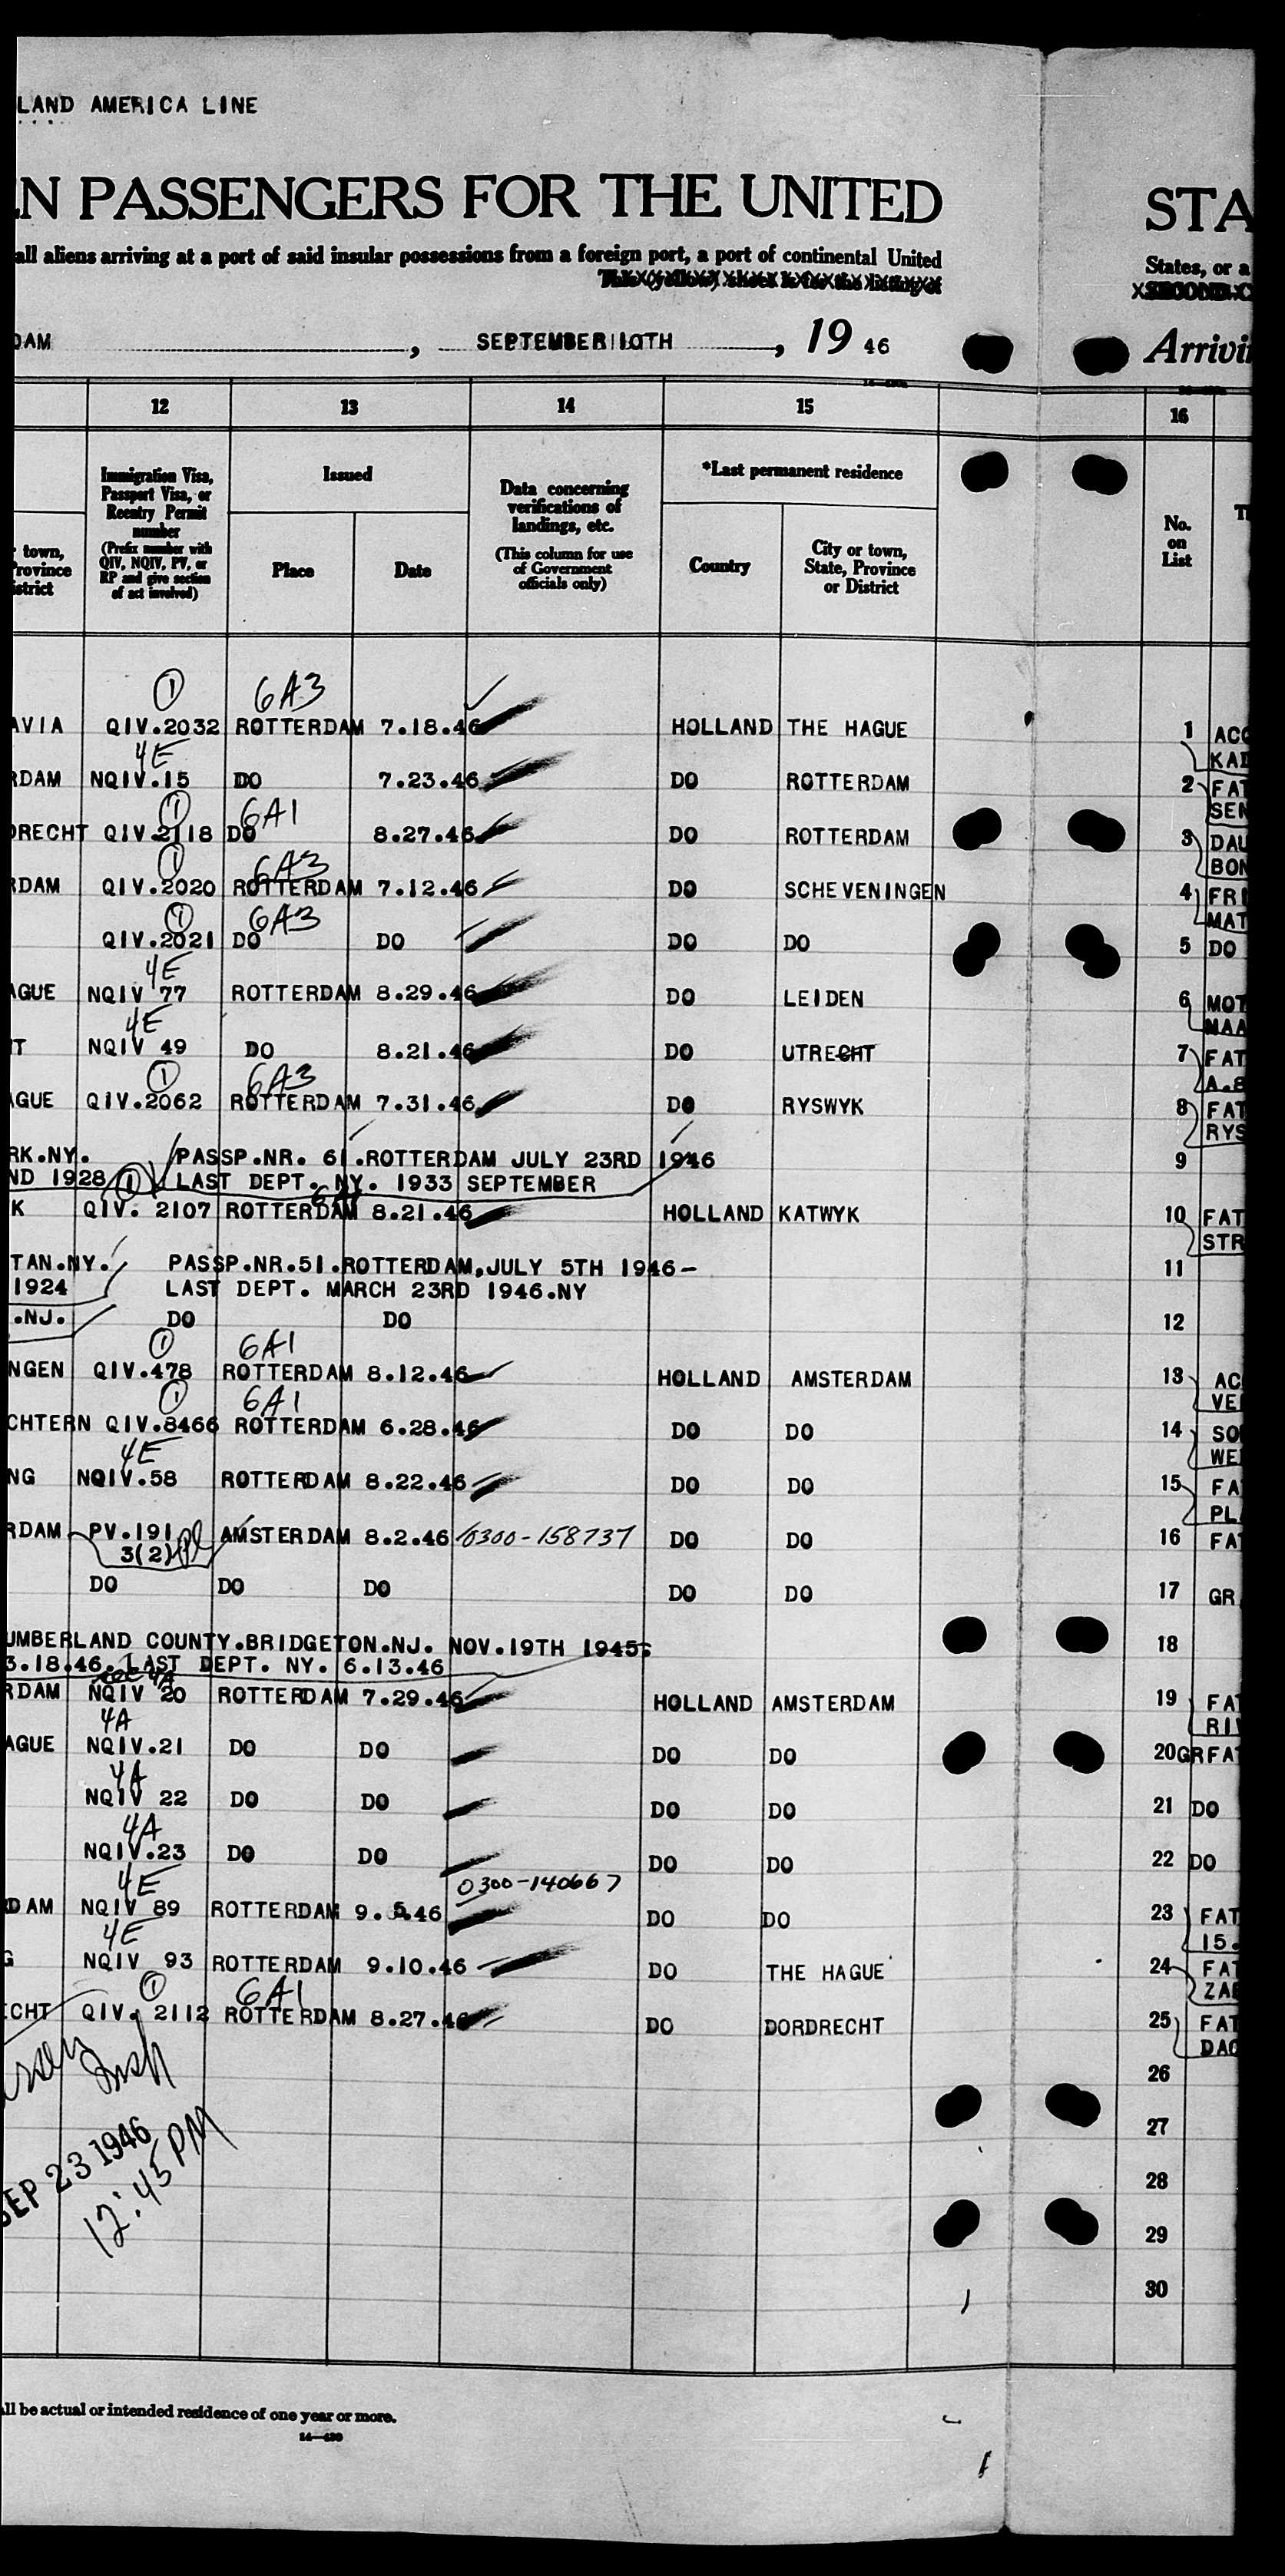 LAND AMERICA LINE
N PASSENGERS FOR THE UNITED STA
all aliens arriving at a port of said insular possessions from a foreign port, a port of continental United States, or a
This (yellow) sheet is for the listing of
DAM , SEPTEMBER 10TH , 19 46 Arrivi
12 13 14 15 16
Immigration Visa,
Passport Visa, or
Reentry Permit
number
(Prefix number with
QIV, NQIV, PV, or
RP and give section
of act involved)
town,
Province
istrict
Issued
Place Date
Data concerning
verifications of
landings, etc.
(This column for use
of Government
officials only)
*Last permanent residence
Country
City or town,
State, Province
or District
No.
on
List
① 6A3
AVIA QIV.2032 ROTTERDAM 7.18.46 HOLLAND THE HAGUE 1 ACC
4E KAD
RDAM NQIV.15 DO 7.23.46 DO ROTTERDAM 2 FAT
① 6A1 SEN
DRECHT QIV.2118 DO 8.27.46 DO ROTTERDAM 3 DAU
① 6A3 BON
RDAM QIV.2020 ROTTERDAM 7.12.46 DO SCHEVENINGEN 4 FRI
① 6A3 MAT
QIV.2021 DO DO DO DO 5 DO
4E
AGUE NQIV 77 ROTTERDAM 8.29.46 DO LEIDEN 6 MOT
4E MAA
T NQIV 49 DO 8.21.46 DO UTRECHT 7 FAT
① 6A3 A.8
AGUE QIV.2062 ROTTERDAM 7.31.46 DO RYSWYK 8 FAT
RYS
RK.NY. PASSP.NR. 61.ROTTERDAM JULY 23RD 1946 9
ND 1928 ① LAST DEPT. NY. 1933 SEPTEMBER
K QIV. 2107 ROTTERDAM 8.21.46 HOLLAND KATWYK 10 FAT
STR
TAN.NY. PASSP.NR.51.ROTTERDAM,JULY 5TH 1946- 11
1924 LAST DEPT. MARCH 23RD 1946.NY
.NJ. DO DO 12
① 6A1
NGEN QIV.478 ROTTERDAM 8.12.46 HOLLAND AMSTERDAM 13 AC
① 6A1 VE
CHTERN QIV.8466 ROTTERDAM 6.28.46 DO DO 14 SO
4E WE
NG NQIV.58 ROTTERDAM 8.22.46 DO DO 15 FA
PL
RDAM PV.191 AMSTERDAM 8.2.46 0300-158737 DO DO 16 FA
3(2)
DO DO DO DO DO 17 GR
UMBERLAND COUNTY.BRIDGETON.NJ. NOV.19TH 1945: 18
3.18.46. LAST DEPT. NY. 6.13.46
4A
RDAM NQIV 20 ROTTERDAM 7.29.46 HOLLAND AMSTERDAM 19 FAT
4A RIV
AGUE NQIV.21 DO DO DO DO 20 GRFAT
4A
NQIV 22 DO DO DO DO 21 DO
4A
NQIV.23 DO DO DO DO 22 DO
4E 0300-140667
DAM NQIV 89 ROTTERDAM 9.5.46 DO DO 23 FAT
4E 15.
G NQIV 93 ROTTERDAM 9.10.46 DO THE HAGUE 24 FAT
① 6A1 ZAE
ECHT QIV. 2112 ROTTERDAM 8.27.46 DO DORDRECHT 25 FAT
DAC
Insh
26
27
SEP 23 1946
12:45 PM
28
29
30
ll be actual or intended residence of one year or more.